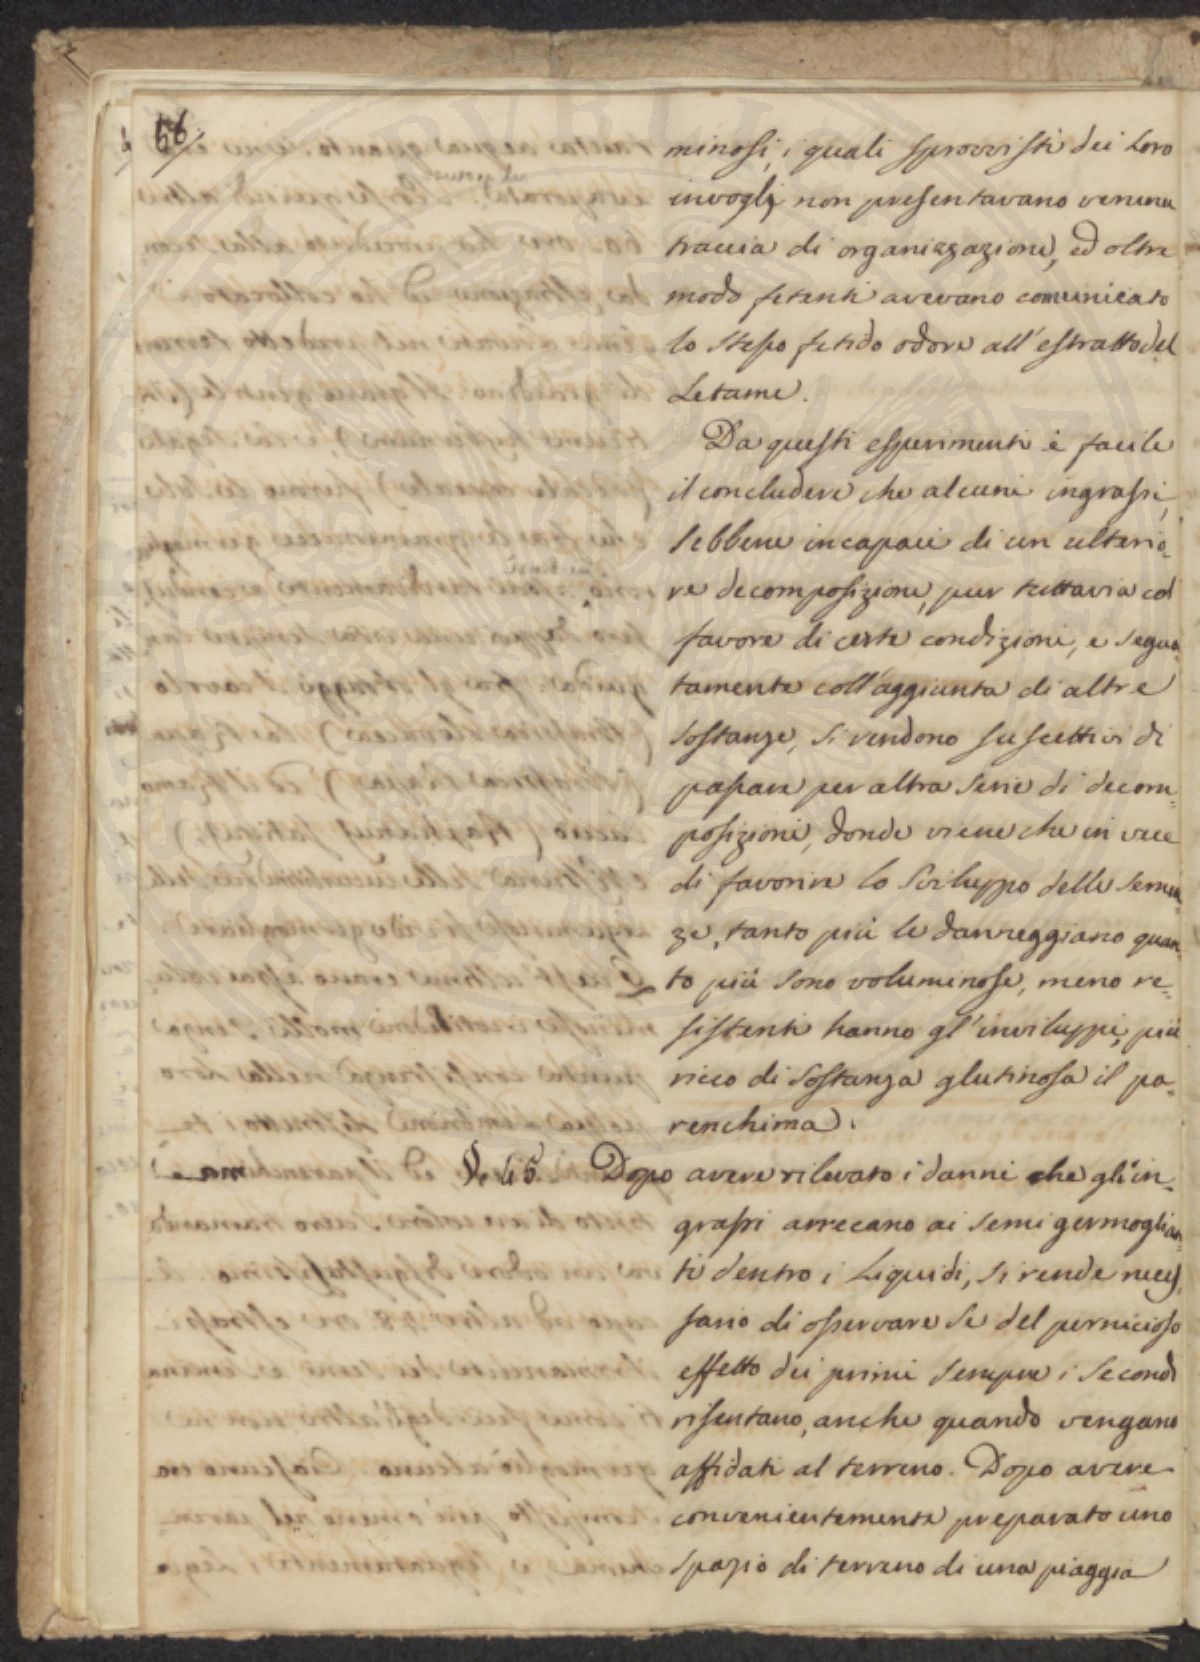 66.
minosi, i quali sprovvisti dei loro
invogli non presentavano veruna
traccia di organizzazione, ed oltre
modo fetenti avevano comunicato
lo stesso fetido odore all'estratto del
Letame.
Da questi esperimenti è facile
il concludere che alcuni ingrassi,
sebbene incapaci di un ulterio-
re decomposizione, pur tuttavia col
favore di certe condizioni, e segna-
tamente coll'aggiunta di altre
sostanze, si rendono suscettivi di
passare per altra serie di decom-
posizioni, donde viene che in vece
di favorire lo sviluppo delle semen-
ze, tanto più le danneggiano quan-
to più sono voluminose, meno re-
sistenti hanno gl'inviluppi, più
ricco di sostanza glutinosa il pa-
renchima.
Dopo avere rilevato i danni che gl'in-
grassi arrecano ai semi germoglian-
ti dentro i Liquidi, si rende neces-
sario di osservare se del pernicioso
effetto dei primi sempre i secondi
risentano, anche quando vengano
affidati al terreno. Dopo avere
convenientemente preparato uno
spazio di terreno di una piaggia